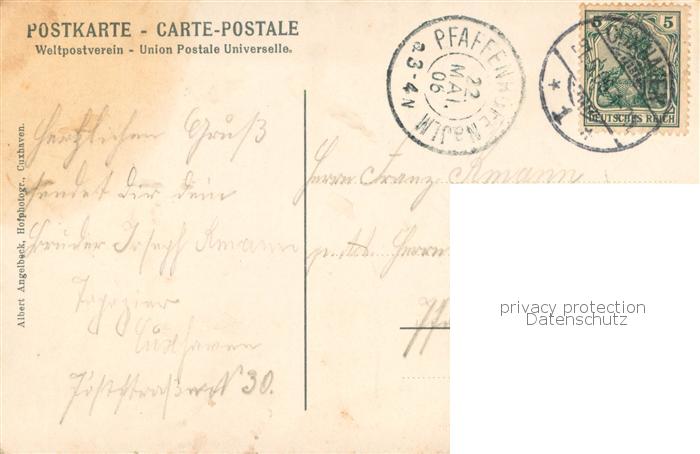 POSTKARTE - CARTE-POSTALE
Weltpostverein - Union Postale Universelle.
Albert Angelbeck, Hofphotogr., Cuxhaven.
PFAFFENHOFEN a/JLM
22
MAI.
06
3-4 N
5 5
DEUTSCHES REICH
Herzlichen Gruß
sendet dir dein
Bruder Joseph Kmann
Cuxhaven
Poststraße No 30.
Herrn Franz Kmann
Herrn
privacy protection
Datenschutz